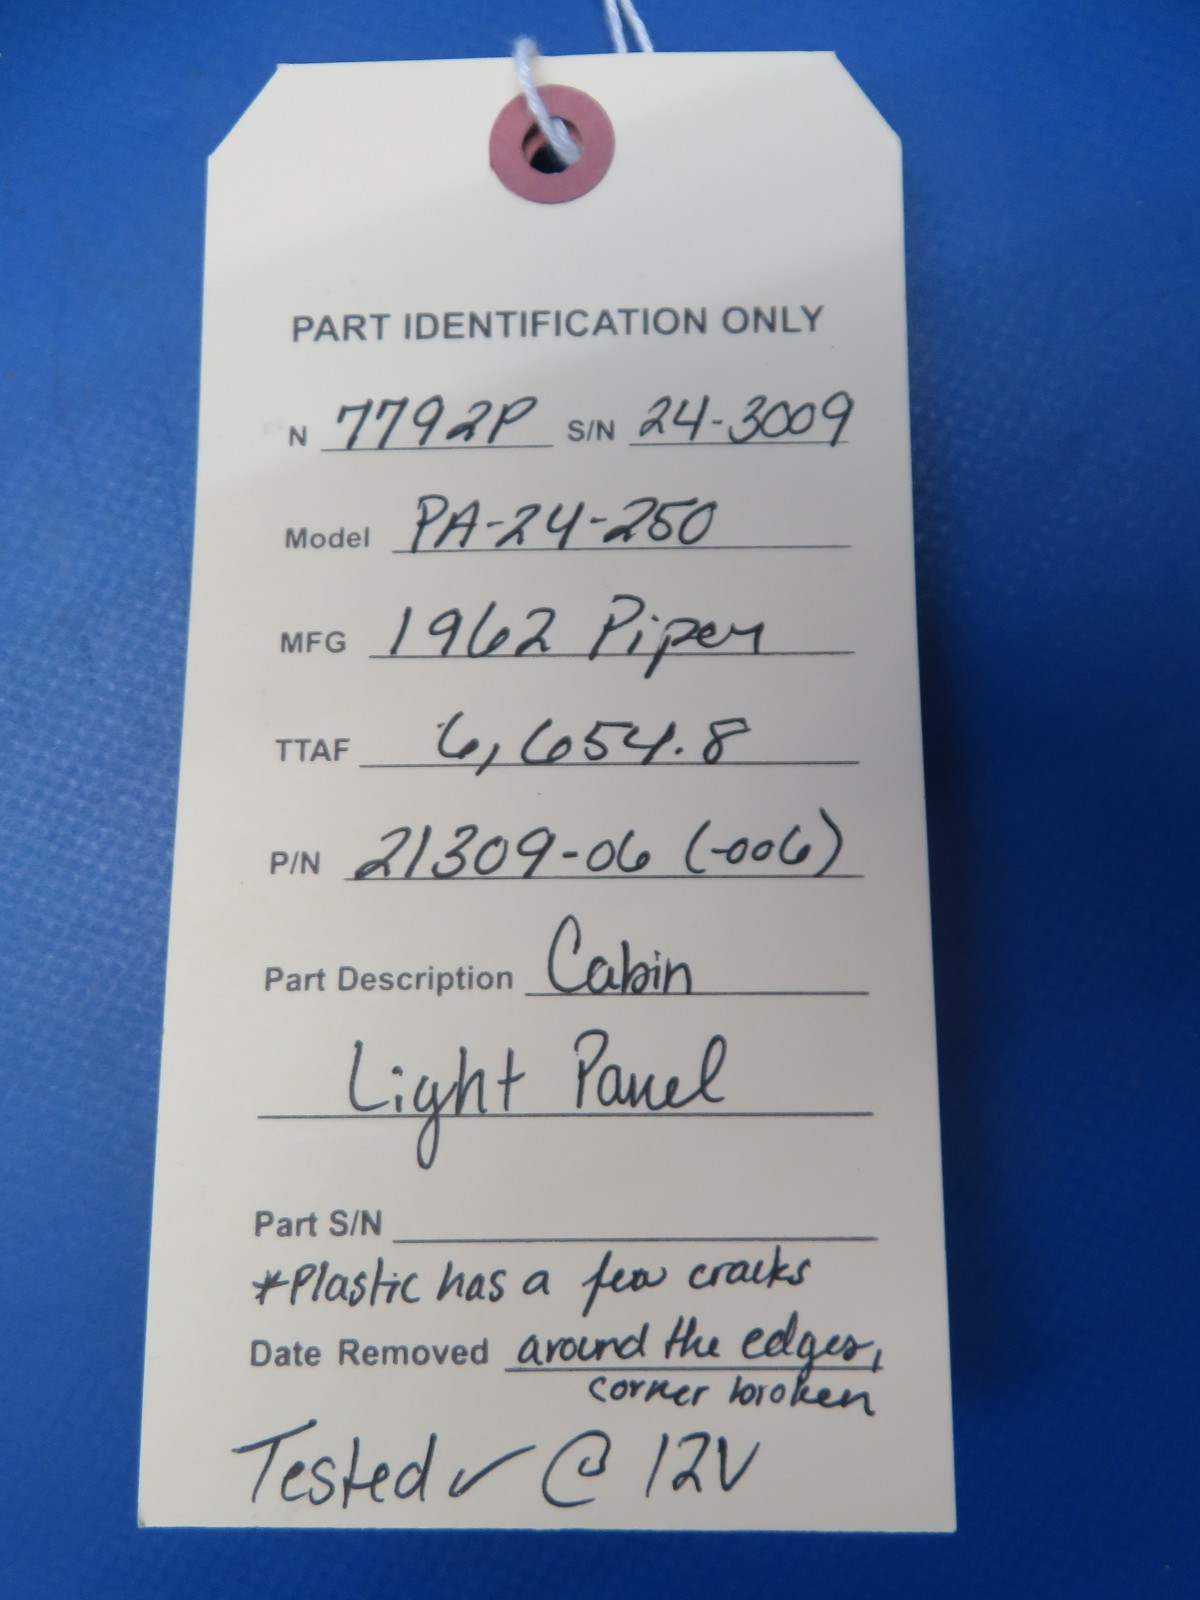 PART IDENTIFICATION ONLY
N 7792P S/N 24-3009
Model PA-24-250
MFG 1962 Piper
TTAF 6,654.8
P/N 21309-06 (-006)
Part Description Cabin
Light Panel
Part S/N
*Plastic has a few cracks
Date Removed around the edges,
corner broken
Tested ✓ @ 12V